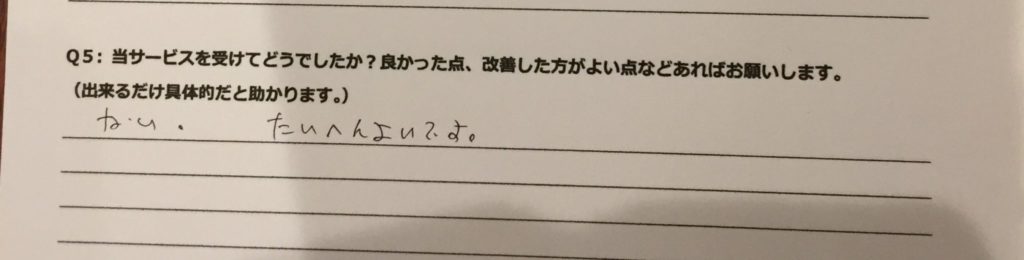 Q5：当サービスを受けてどうでしたか？良かった点、改善した方がよい点などあればお願いします。
（出来るだけ具体的だと助かります。）
ない。 たいへんよいです。